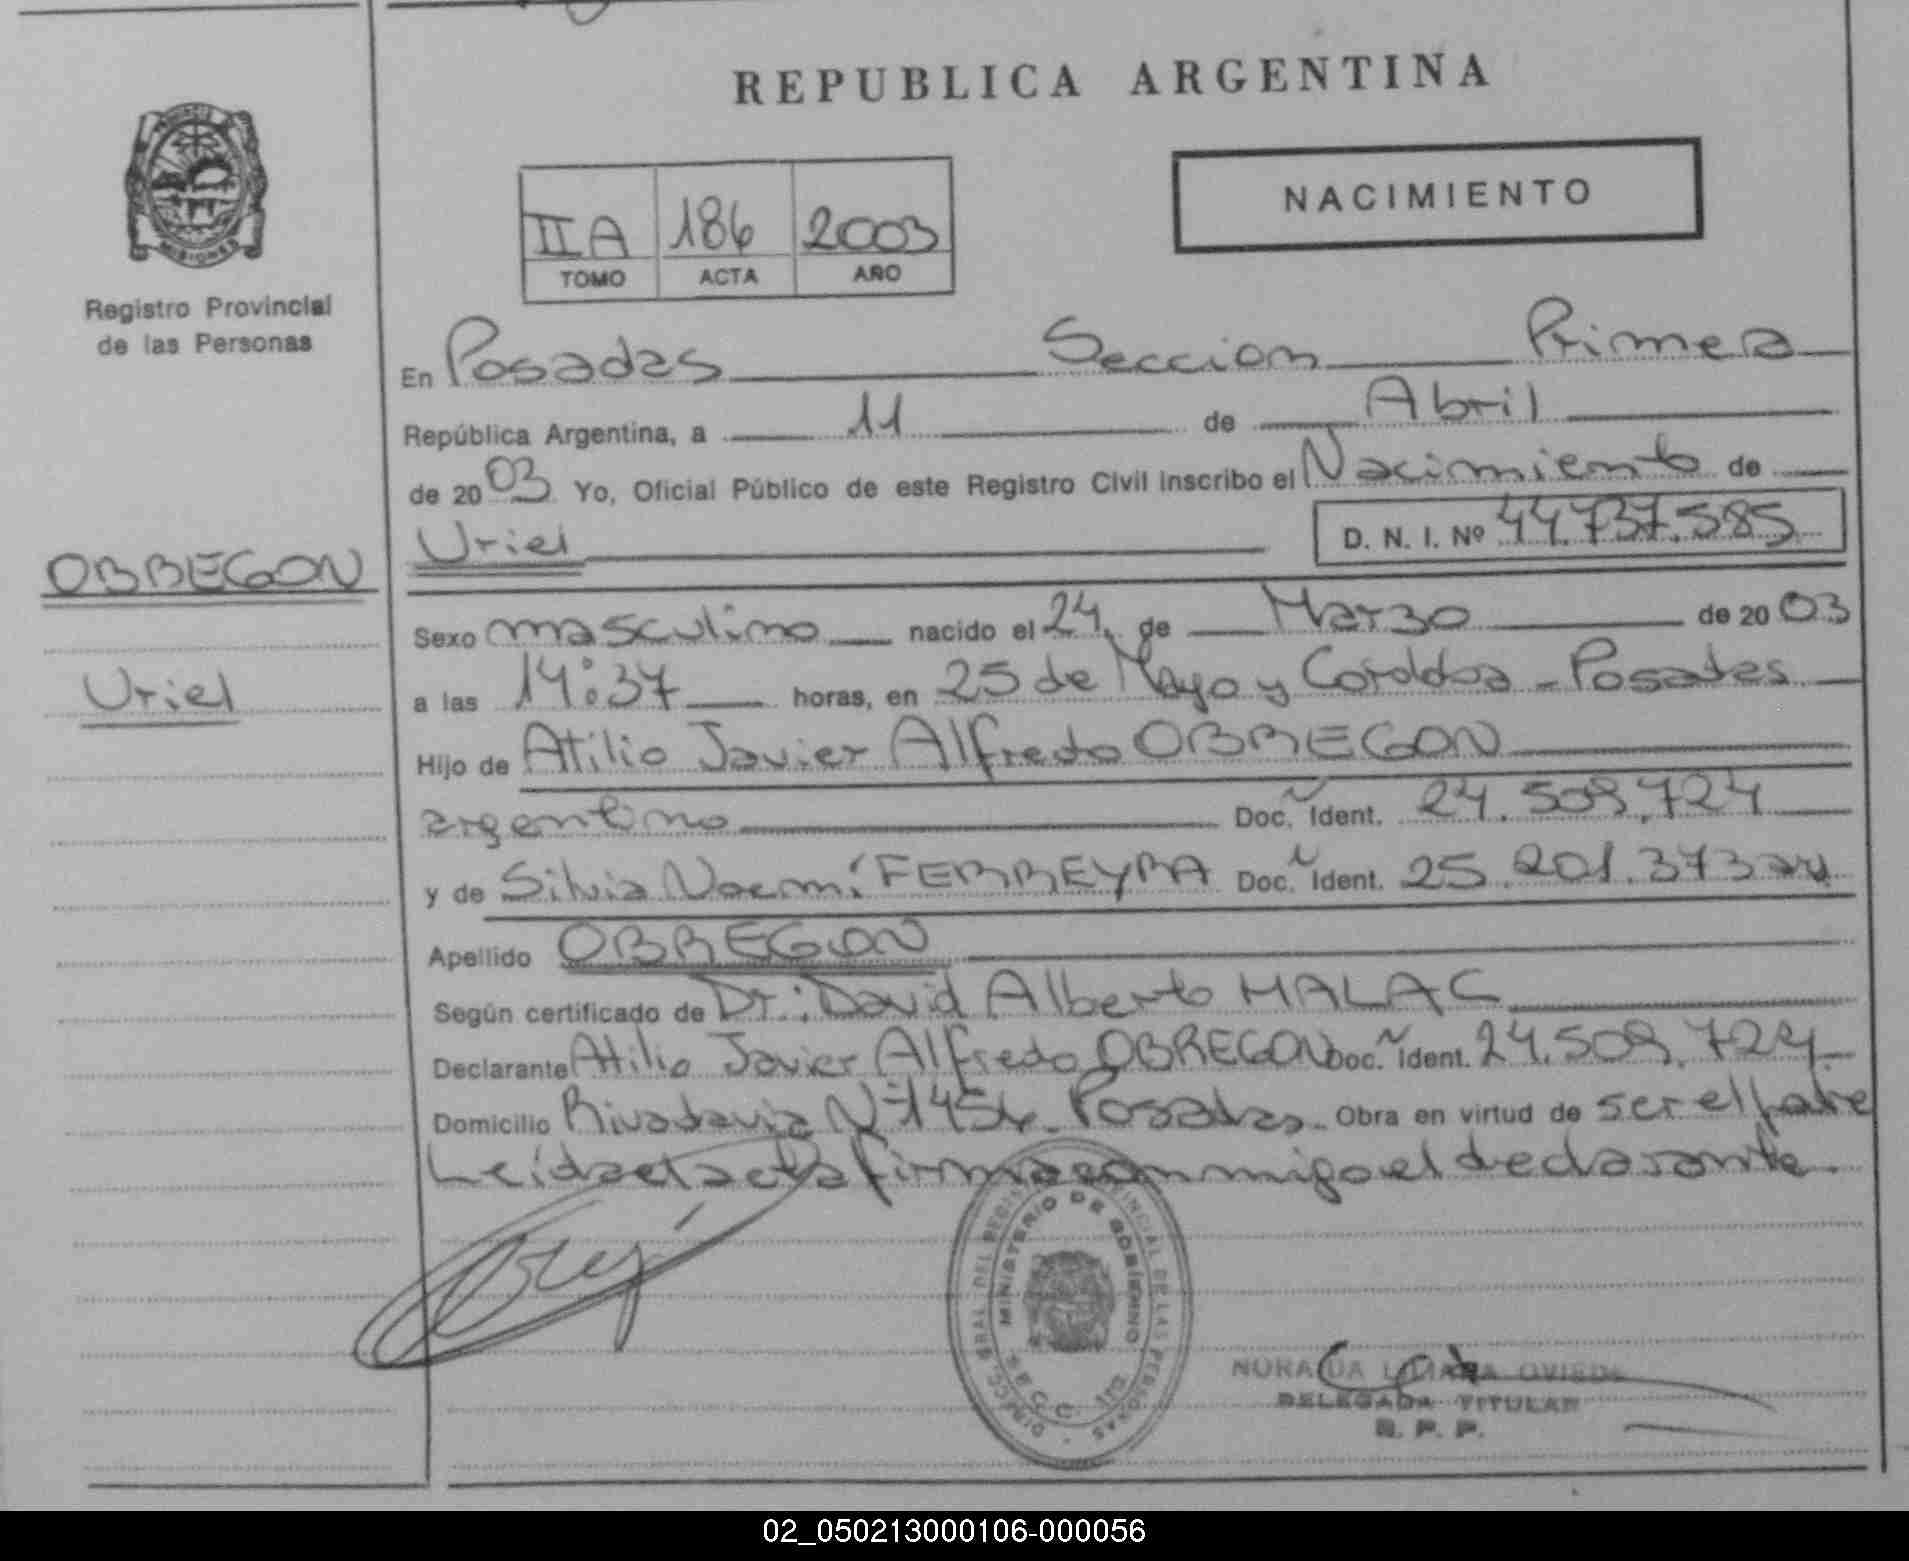 REPUBLICA ARGENTINA
NACIMIENTO
II A 186 2003
TOMO ACTA AÑO
MISIONES
Registro Provincial
de las Personas
En Posadas Seccion Primera
República Argentina, a 11 de Abril
de 2003 Yo, Oficial Público de este Registro Civil inscribo el Nacimiento de
Uriel D. N. I. Nº 44.737.585
OBREGON
Uriel
Sexo masculino nacido el 24 de Marzo de 2003
a las 14:37 horas, en 25 de Mayo y Cordoba - Posadas
Hijo de Atilio Javier Alfredo OBREGON
argentino Doc. Ident. 24.509.724
y de Silvia Noemí FERREYRA Doc. Ident. 25.201.373
Apellido OBREGON
Según certificado de Dr.: David Alberto MALAC
Declarante Atilio Javier Alfredo OBREGON Doc. Ident. 24.509.724
Domicilio Rivadavia Nº 1456 Posadas. Obra en virtud de ser el padre
Leida el acta firma conmigo el declarante.
MINISTERIO DE GOBIERNO
LILIANA OVIEDO
DELEGADA TITULAR
R. P. P.
02_050213000106-000056